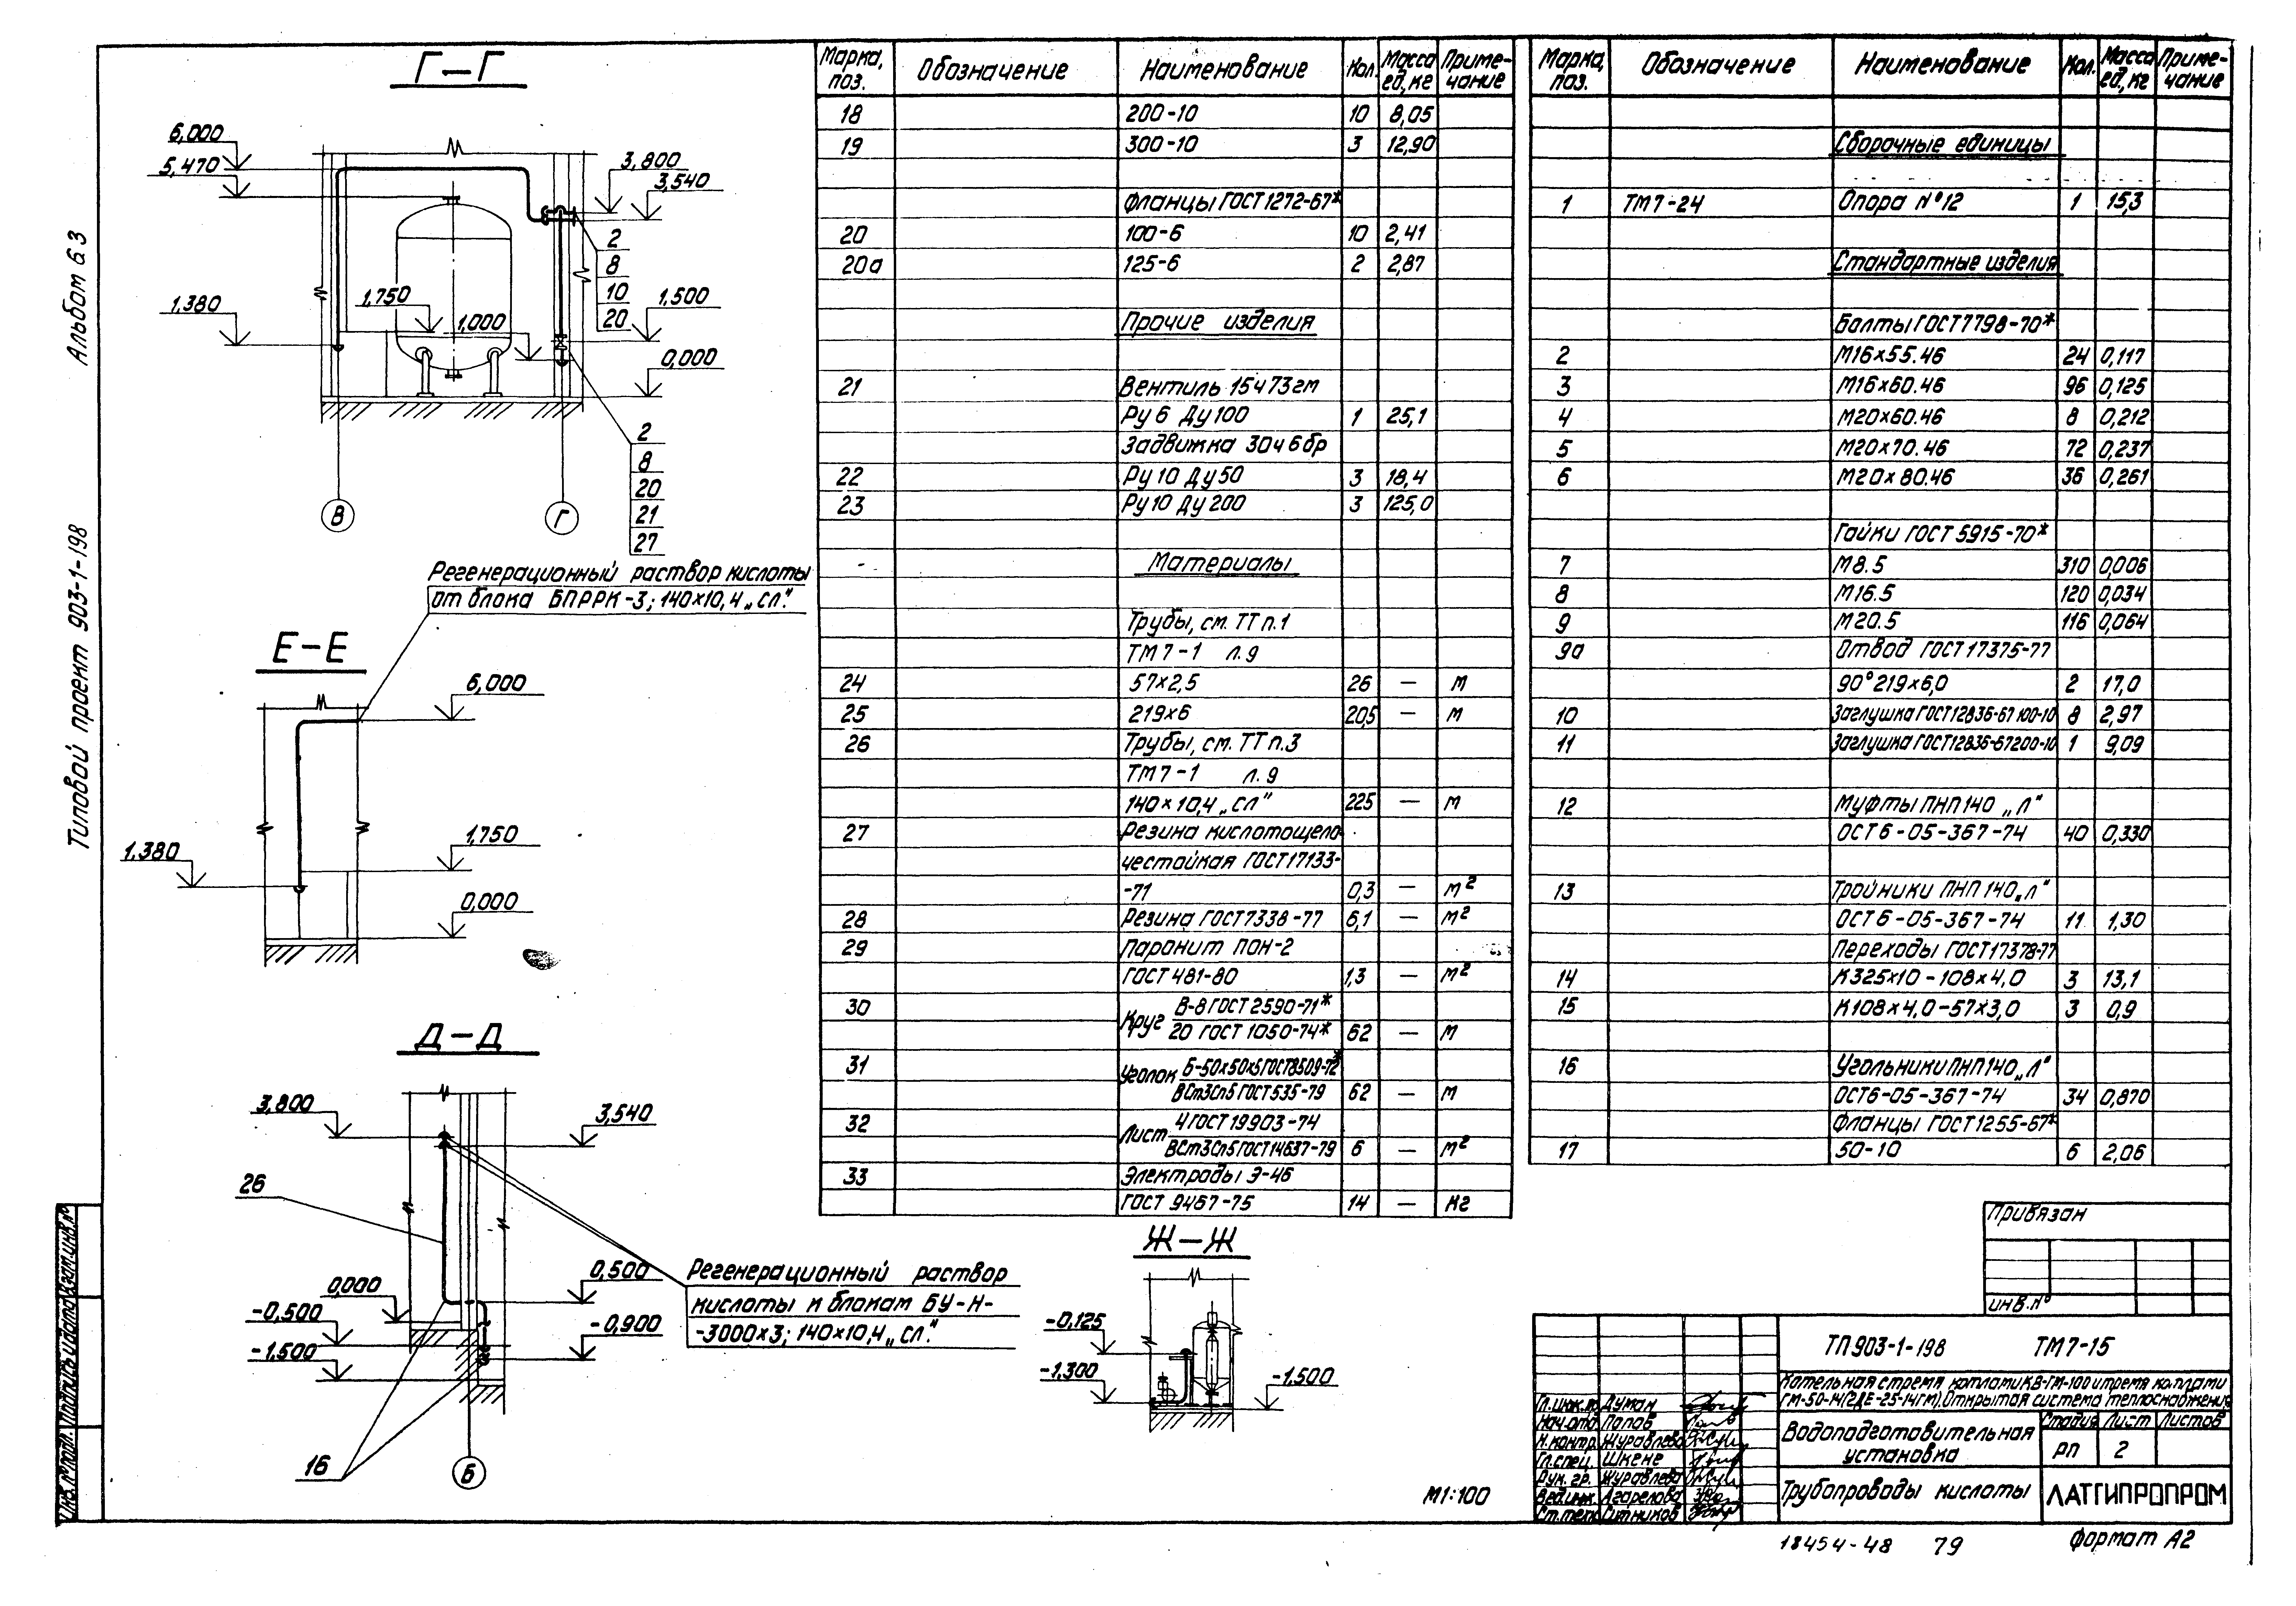 Альбом 6.3
Типовой проект 903-1-198
Г–Г
6,000
5,470
1,380
1,750
1,000
3,800
3,540
1,500
0,000
2
8
10
20
2
8
20
21
27
В
Г
Регенерационный раствор кислоты
от блока БПРРК-3; 140×10,4 „сл."
Е–Е
6,000
1,750
1,380
0,000
Д–Д
3,800
3,540
26
0,000
-0,500
-1,500
0,500
-0,900
16
Б
Регенерационный раствор
кислоты к блокам БУ-Н-
-3000×3; 140×10,4 „сл."
Ж–Ж
-0,125
-1,300
-1,500
М1:100
Марка, поз. Обозначение Наименование Кол. Масса ед., кг Приме-чание
18 200-10 10 8,05
19 300-10 3 12,90
Фланцы ГОСТ 1272-67*
20 100-6 10 2,41
20а 125-6 2 2,87
Прочие изделия
21 Вентиль 15ч73гм
Ру 6 Ду 100 1 25,1
Задвижка 30ч6бр
22 Ру 10 Ду 50 3 18,4
23 Ру 10 Ду 200 3 125,0
Материалы
Трубы, см. ТТ п.1
ТМ 7-1 л.9
24 57×2,5 26 — м
25 219×6 20,5 — м
26 Трубы, см. ТТ п.3
ТМ 7-1 л.9
140×10,4 „сл" 225 — м
27 Резина кислотощело-
честойкая ГОСТ 17133-
-71 0,3 — м²
28 Резина ГОСТ 7338-77 6,1 — м²
29 Паронит ПОН-2
ГОСТ 481-80 1,3 — м²
30 Круг В-8 ГОСТ 2590-71*
20 ГОСТ 1050-74* 62 — м
31 Уголок Б-50×50×5 ГОСТ 8509-72*
ВСт3сп5 ГОСТ 535-79 62 — м
32 Лист 4 ГОСТ 19903-74
ВСт3сп5 ГОСТ 14637-79 6 — м²
33 Электроды Э-46
ГОСТ 9467-75 14 — кг
Марка, поз. Обозначение Наименование Кол. Масса ед., кг Приме-чание
Сборочные единицы
1 ТМ 7-24 Опора №12 1 15,3
Стандартные изделия
Болты ГОСТ 7798-70*
2 М16×55.46 24 0,117
3 М16×60.46 96 0,125
4 М20×60.46 8 0,212
5 М20×70.46 72 0,237
6 М20×80.46 36 0,261
Гайки ГОСТ 5915-70*
7 М8.5 310 0,006
8 М16.5 120 0,034
9 М20.5 116 0,064
9а Отвод ГОСТ 17375-77
90° 219×6,0 2 17,0
10 Заглушка ГОСТ 12836-67 100-10 8 2,97
11 Заглушка ГОСТ 12836-67 200-10 1 9,09
12 Муфты ПНП 140 „Л"
ОСТ 6-05-367-74 40 0,330
13 Тройники ПНП 140 „Л"
ОСТ 6-05-367-74 11 1,30
Переходы ГОСТ 17378-77
14 К325×10-108×4,0 3 13,1
15 К108×4,0-57×3,0 3 0,9
16 Угольники ПНП 140 „Л"
ОСТ 6-05-367-74 34 0,870
Фланцы ГОСТ 1255-67*
17 50-10 6 2,06
Привязан
инв.№
ТП 903-1-198 ТМ 7-15
Котельная с тремя котлами КВ-ГМ-100 и тремя котлами
ГМ-50-14(2ДЕ-25-14ГМ). Открытая система теплоснабжения
Гл.инж.пр. Думан
Нач.отд. Попов
Н.контр. Журавлева
Гл.спец. Шкене
Рук. гр. Журавлева
Вед.инж. Агарелова
Ст.техн. Ситников
Водоподготовительная
установка
Стадия Лист Листов
РП 2
Трубопроводы кислоты
ЛАТГИПРОПРОМ
18454-48 79
Формат А2
Инв.№подл. Подпись и дата Взам.инв.№